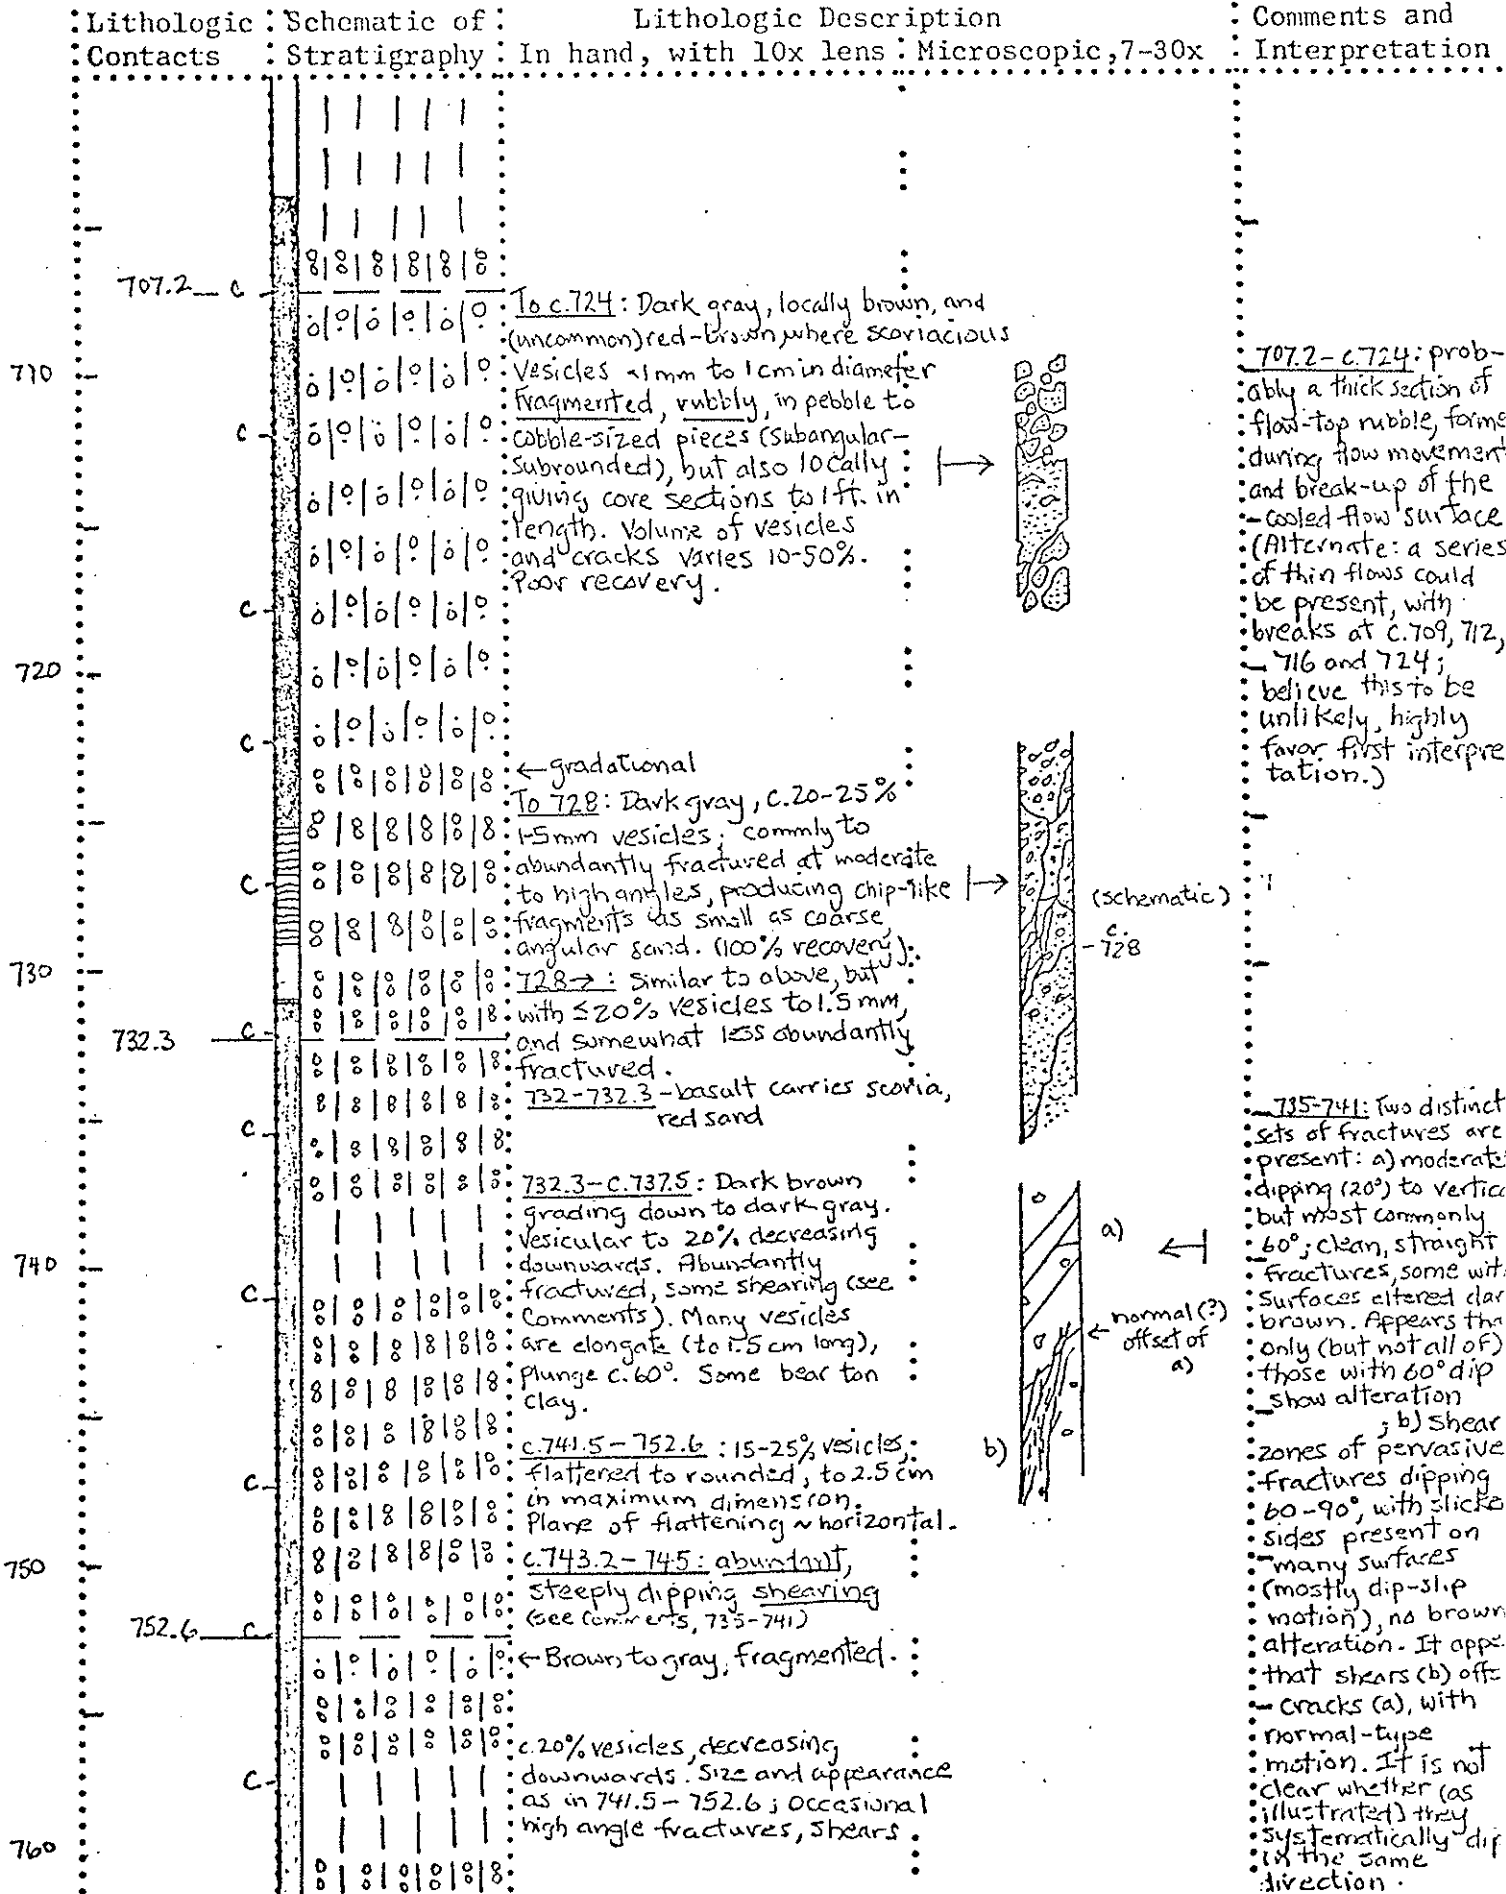 Lithologic Contacts
Schematic of Stratigraphy
Lithologic Description
In hand, with 10x lens : Microscopic,7-30x
Comments and Interpretation
707.2 c
710
c
c
720
c
c
730
732.3 c
c
740
c
c
750
752.6 c
c
760
To c.724: Dark gray, locally brown, and
(uncommon) red-brown where scoriacious
Vesicles <1mm to 1cm in diameter
Fragmented, rubbly, in pebble to
cobble-sized pieces (subangular-
subrounded), but also locally
giving core sections to 1ft. in
length. Volume of vesicles
and cracks varies 10-50%.
Poor recovery.
←gradational
To 728: Dark gray, c.20-25%
1-5mm vesicles; commly to
abundantly fractured at moderate
to high angles, producing chip-like
fragments as small as coarse,
angular sand. (100% recovery).
728→: Similar to above, but
with ≤20% vesicles to 1.5 mm,
and somewhat less abundantly
fractured.
732-732.3-basalt carries scoria,
red sand
732.3-c.737.5: Dark brown
grading down to dark gray.
Vesicular to 20% decreasing
downwards. Abundantly
fractured, some shearing (see
Comments). Many vesicles
are elongate (to 1.5 cm long),
plunge c.60°. Some bear tan
clay.
c.741.5-752.6: 15-25% vesicles,
flattened to rounded, to 2.5 cm
in maximum dimension.
Plane of flattening ~horizontal.
c.743.2-745: abundant,
steeply dipping shearing
(see Comments, 735-741)
←Brown to gray, fragmented.
c.20% vesicles, decreasing
downwards. Size and appearance
as in 741.5-752.6; occasional
high angle fractures, shears
(schematic)
c.
-728
a)
normal(?)
offset of
a)
b)
707.2-c.724: prob-
ably a thick section of
flow-top rubble, forme
during flow movement
and break-up of the
cooled flow surface
(Alternate: a series
of thin flows could
be present, with
breaks at c.709, 712,
716 and 724;
believe this to be
unlikely, highly
favor first interpre
tation.)
735-741: Two distinct
sets of fractures are
present: a) moderate
dipping (20°) to vertica
but most commonly
60°; clean, straight
fractures, some wit
surfaces altered dar
brown. Appears tha
only (but not all of)
those with 60° dip
show alteration
; b) shear
zones of pervasive
fractures dipping
60-90°, with slicke
sides present on
many surfaces
(mostly dip-slip
motion), no brown
alteration. It appe
that shears (b) offs
cracks (a), with
normal-type
motion. It is not
clear whether (as
illustrated) they
systematically dip
in the same
direction.